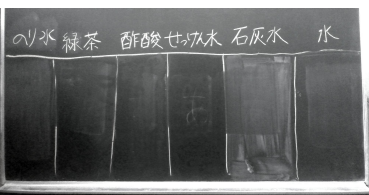 のり水 緑茶 酢酸 せっけん水 石灰水 水